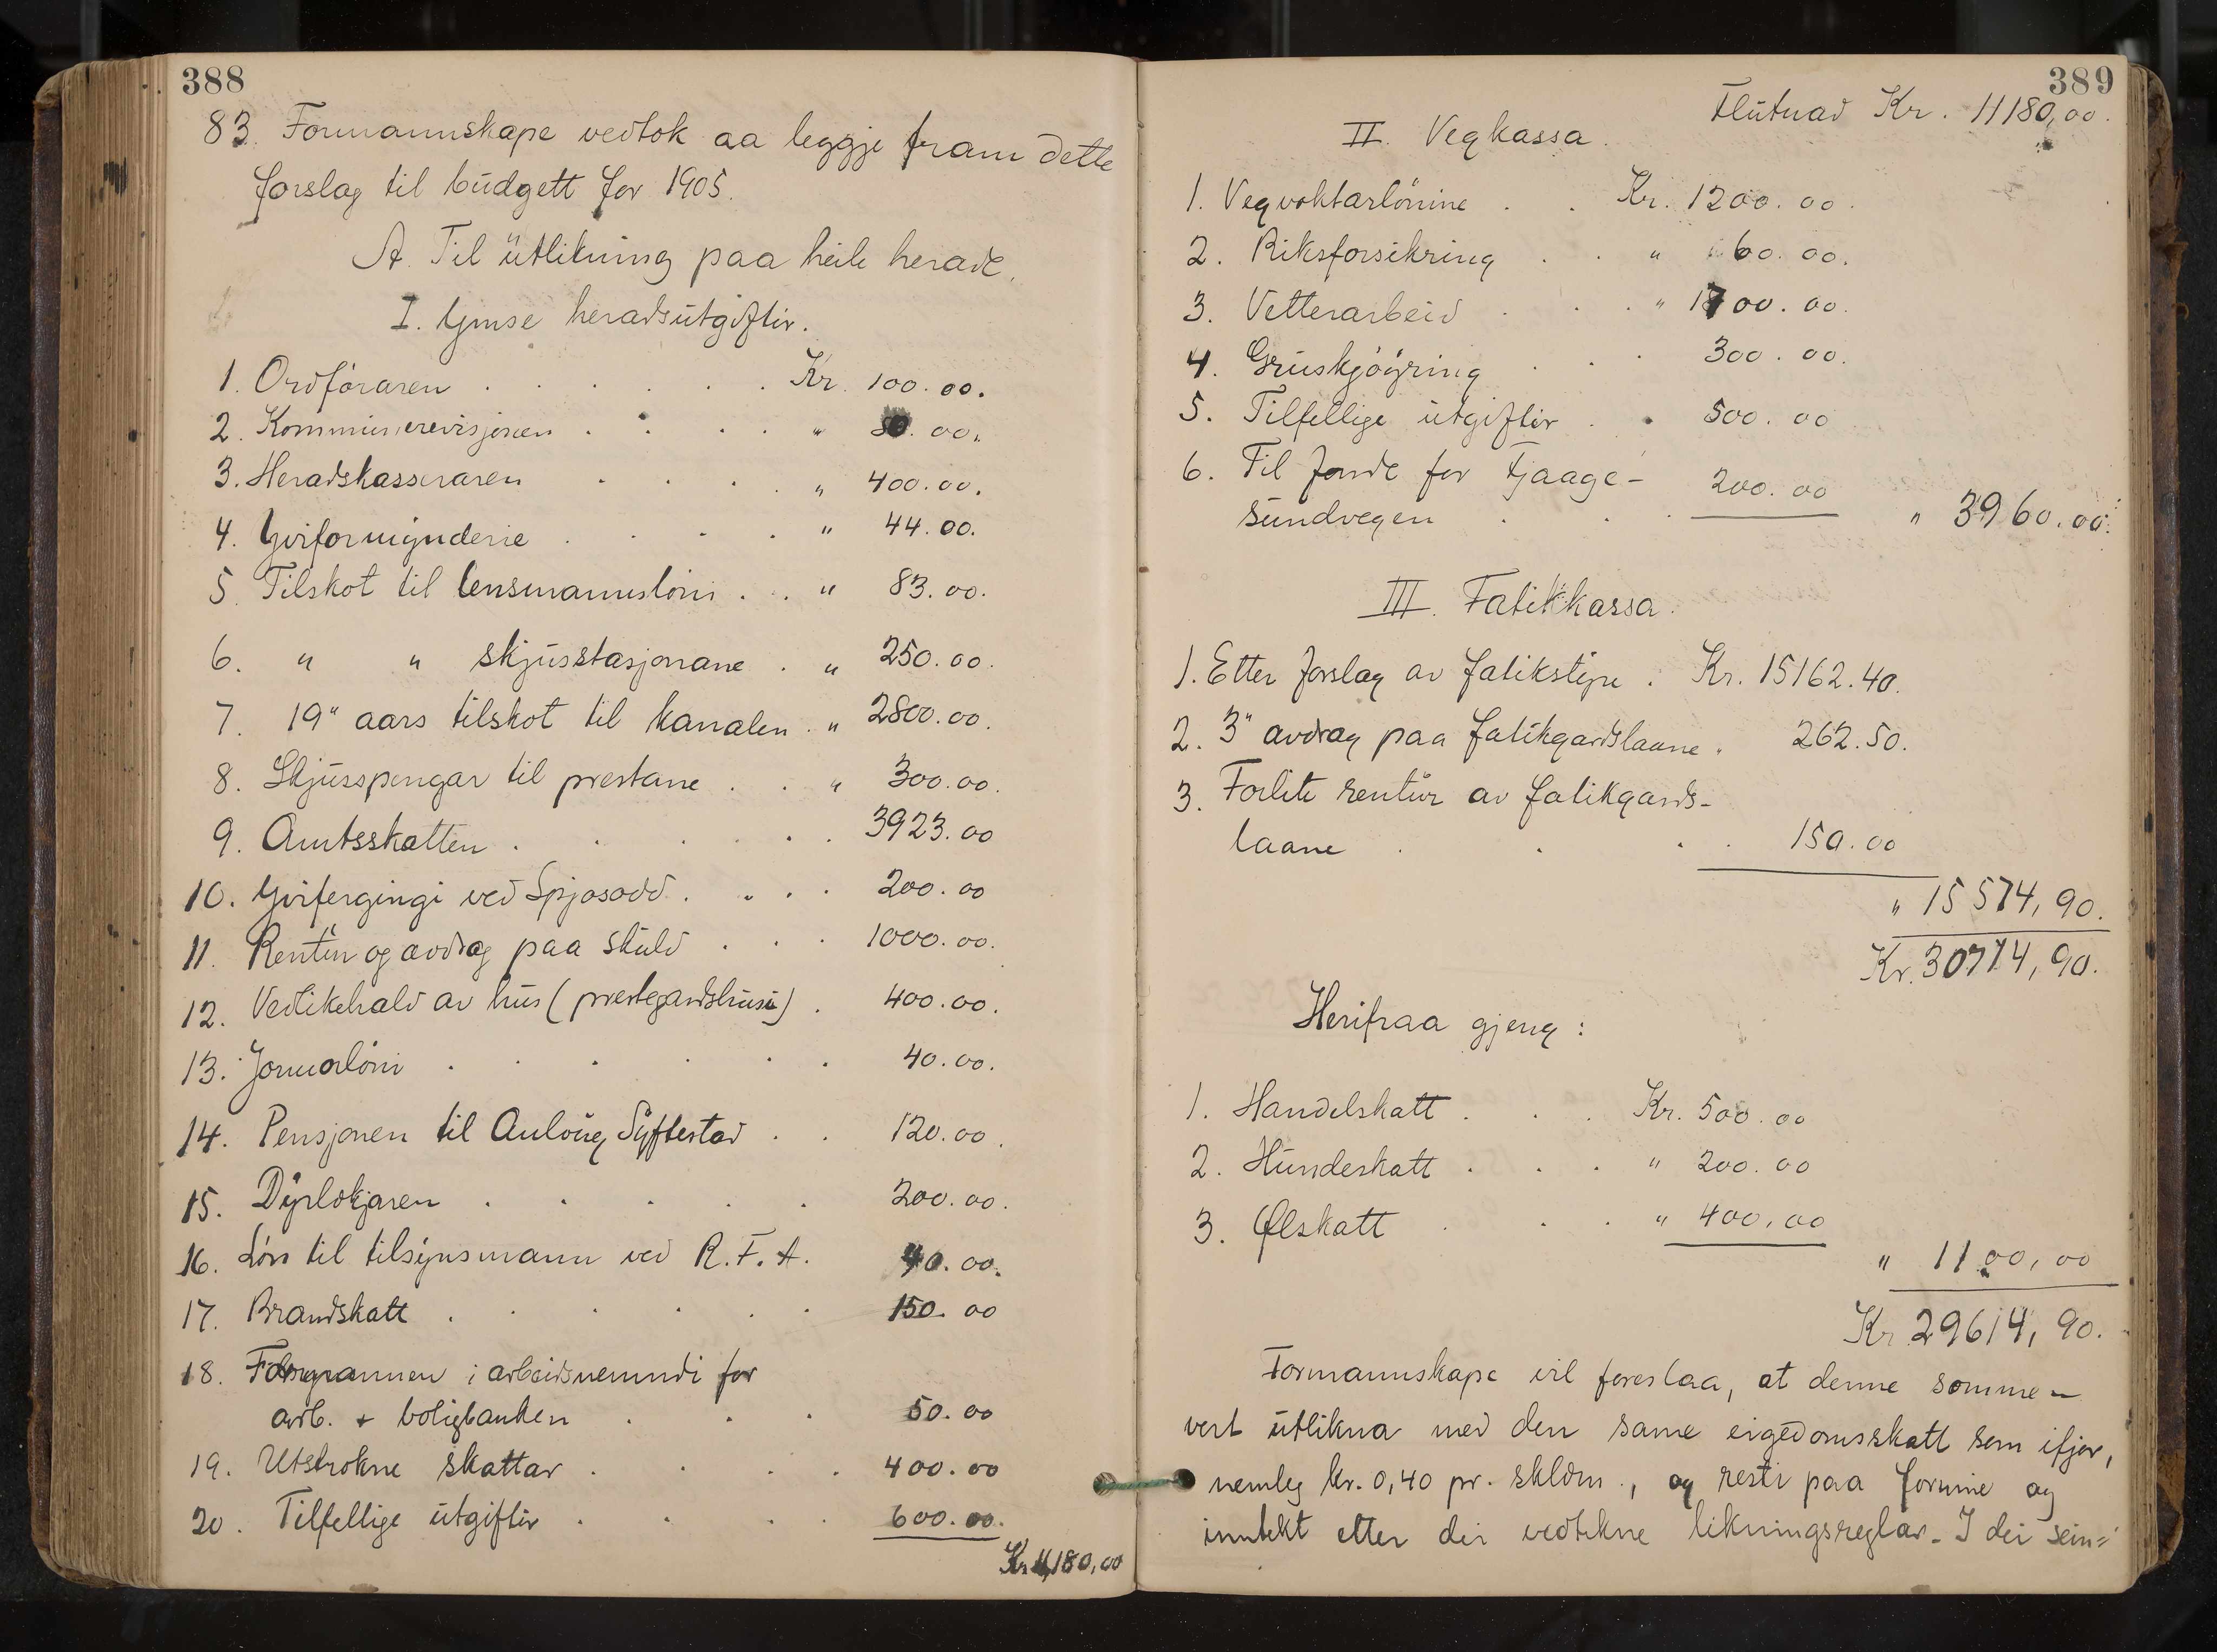 388
83. Formannskape vedtok aa leggje fram dette
forslag til budgett for 1905.
A. Til utlikning paa heile herade.
I. Ymse heradsutgifter.
1. Ordföraren . . . . . . Kr. 100.00.
2. Kommunerevisjonen . . . . " 80.00.
3. Heradskasseraren . . . . " 400.00.
4. Yviformynderie . . . . " 44.00.
5. Tilskot til lensmannslöni . . " 83.00.
6. " " skjusstasjonane . " 250.00.
7. 19" aars tilskot til kanalen . " 2800.00.
8. Skjusspengar til prestane . . " 300.00.
9. Amtsskatten . . . . . . 3923.00
10. Yvifergingi ved Spjosodd . . . 200.00
11. Rentur og avdrag paa skuld . . . 1000.00.
12. Vedlikehald av hus (prestegardshusi) . 400.00.
13. Jormorlöni . . . . . 40.00.
14. Pensjonen til Aulöug Syftestad . . 120.00.
15. Dyrlækjaren . . . . . 200.00.
16. Lön til tilsynsmann ved R.F.A. 40.00.
17. Brandskatt . . . . . 150.00
18. Formannen i arbeidsnemndi for
arb. + boligbanken . . . 50.00
19. Utstrokne skattar . . . . 400.00
20. Tilfellige utgifter . . . . 600.00.
Kr. 11,180,00
389
Flutnad Kr. 11180,00.
II. Vegkassa.
1. Vegvoktarlönine . . Kr. 1200.00.
2. Riksforsikring . . " 60.00.
3. Vetterarbeid . . . " 1700.00.
4. Gruskjöyring . . 300.00.
5. Tilfellige utgifter . . 500.00
6. Til fonde for Tjaage-
sundvegen . . . 200.00
" 3960.00.
III. Fatikkassa.
1. Etter forslag av fatikstyre . Kr. 15162.40.
2. 3" avdrag paa fatikgardslaane " 262.50.
3. Forlite rentur av fatikgards-
laane . . . . 150.00
" 15574,90.
Kr. 30714,90.
Herifraa gjeng:
1. Handelskatt . . . Kr. 500.00
2. Hundeskatt . . . " 200.00
3. Ølskatt . . . " 400,00
" 1100,00
Kr. 29614,90.
Formannskape vil foreslaa, at denne sommen
vert utlikna med den same eigedomsskatt som ifjor,
nemleg kr. 0,40 pr. skldm., og resti paa formue og
inntekt etter dei vedtekne likningsreglar. I dei sein=